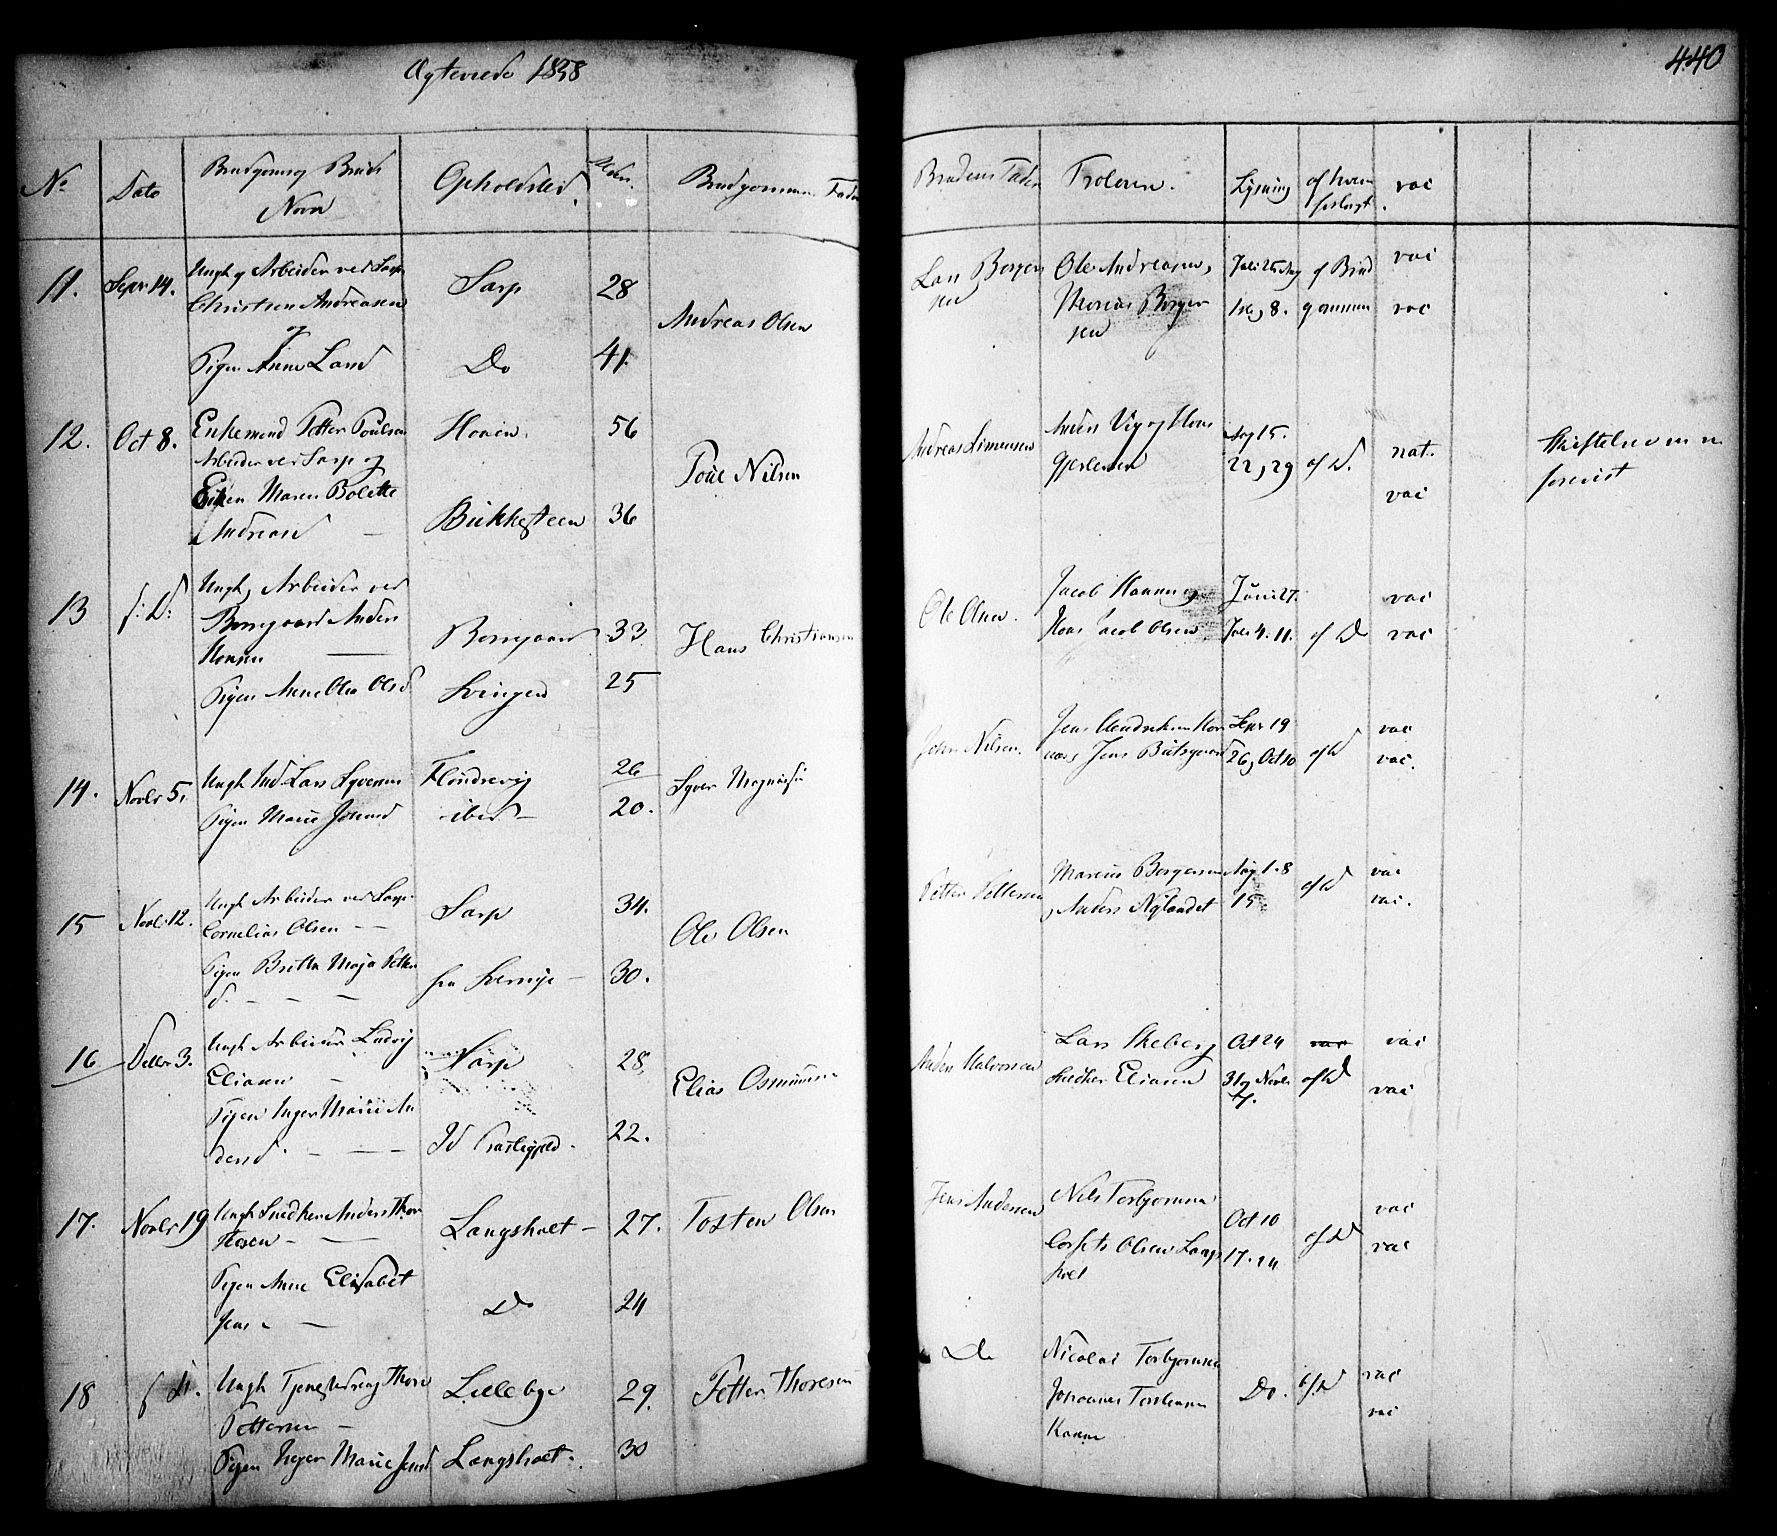 Ægteviede 1838
440
No
Date
Brudgom og Bruds
Navn
Opholdsted.
Alder.
Brudgommens Fader
Brudens Fader
Trolovere.
Lysning
af hvem
forlangt.
vac
11.
Sepr 14.
Ungk og Arbeider ved Sarp
Christian Andreasen
og
Pigen Anne Larsd
Sarp
Do
28
41.
Andreas Olsen
Lars Borger
sen
Ole Andreasen,
Marcus Borger
sen
Juli 25 Aug
1 og 8.
af Brud
gommen
vac
vac
12.
Oct 8.
Enkemand Petter Poulsen
Arbeider ved Sarp og
Enken Maren Bolette
Andreasd —
Haven.
Bukkesteen
56
36
Poul Nilsen
Andreas Simensen
Anders Vig og Hans
Aug 15.
22, 29
af D.
nat.
vac
forevist
13
f: D:
Ungk, Arbeider ved
Borregaard Anders
Hansen —
Pigen Anne Olea Olsd
Borregaard
Svingen
33
25
Hans Christiansen
Ole Olsen.
Jacob Hannæs
Hans Jacob Olsen
Juni 27.
Juli 4. 11.
af D
vac
vac
14.
Novbr 5.
Ungk Ind. Lars Syversen
Pigen Marie Johansd
Flondrevig
ibid —
26
20.
Syver Magnusen
John Nilsen.
Sepr 19
26, Oct 10
af D
vac
vac.
15
Novbr 12.
Ungk Arbeider ved Sarp
Cornelius Olsen — —
Pigen Britta Maja Petter
d. — — —
Sarp
fra Sverrige —
34.
30.
Ole Olsen
Petter Pettersen
Marcus Borgersen
, Anders Nylandet
Aug 1. 8
15
af D
vac
vac.
16
Decbr 3.
Ungk Arbeider Ludvig
Eliasen —
Pigen Inger Marie An
dersd. — — —
Sarp
Id Præstegjeld.
28,
22.
Elias Osmunsen
Anders Halvorsen
Lars Skeberg
Snedker Eliasen
Oct 24
31 og Novbr
7.
vac
af D
vac
vac
17.
Novbr 19
Ungk Snedker Anders Thor
stesen — —
Pigen Anne Elisabet
Jens — —
Langsholt —
Do
27.
24
Tosten Olsen
Jens Andersen
Nils Torbjørnsen
Olsen Langs
holt
Oct 10
17. 24
af D
vac
vac
18
f D.
Ungk Tjenestedreng Thore
Pettersen —
Pigen Inger Marie Jensd
Lillebye
Langsholt.
29.
30
Petter Thoresen
Do
Nicolai Torbjørnsen
Johannes Torstensen
Do.
af D
vac
vac